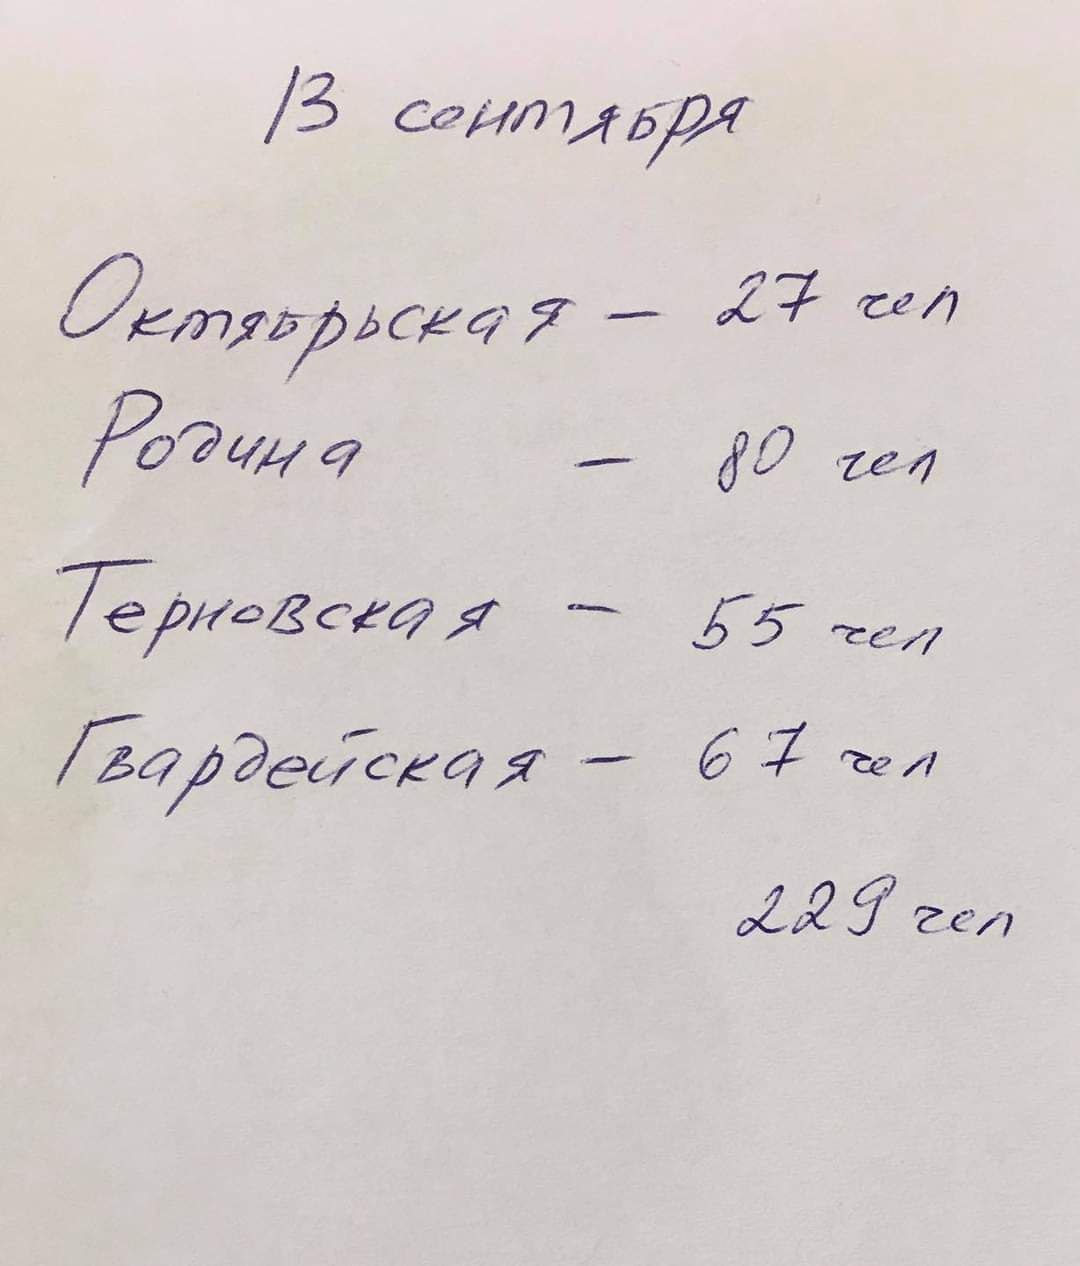 13 сентября
Октябрьская – 27 чел
Родина – 80 чел
Терновская – 55 чел
Гвардейская – 67 чел
229 чел